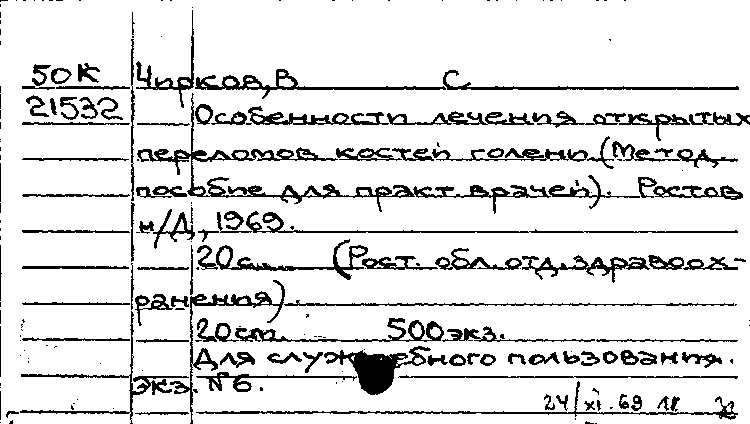 50К Чирков, В С
21532 Особенности лечения открытых
переломов костей голени (Метод.
пособие для практ. врачей). Ростов
н/Д, 1969.
20 с. (Рост. обл. отд. здравоох-
ранения).
20 cm. 500 экз.
Для служебного пользования.
Экз. №6.
24/XI.69